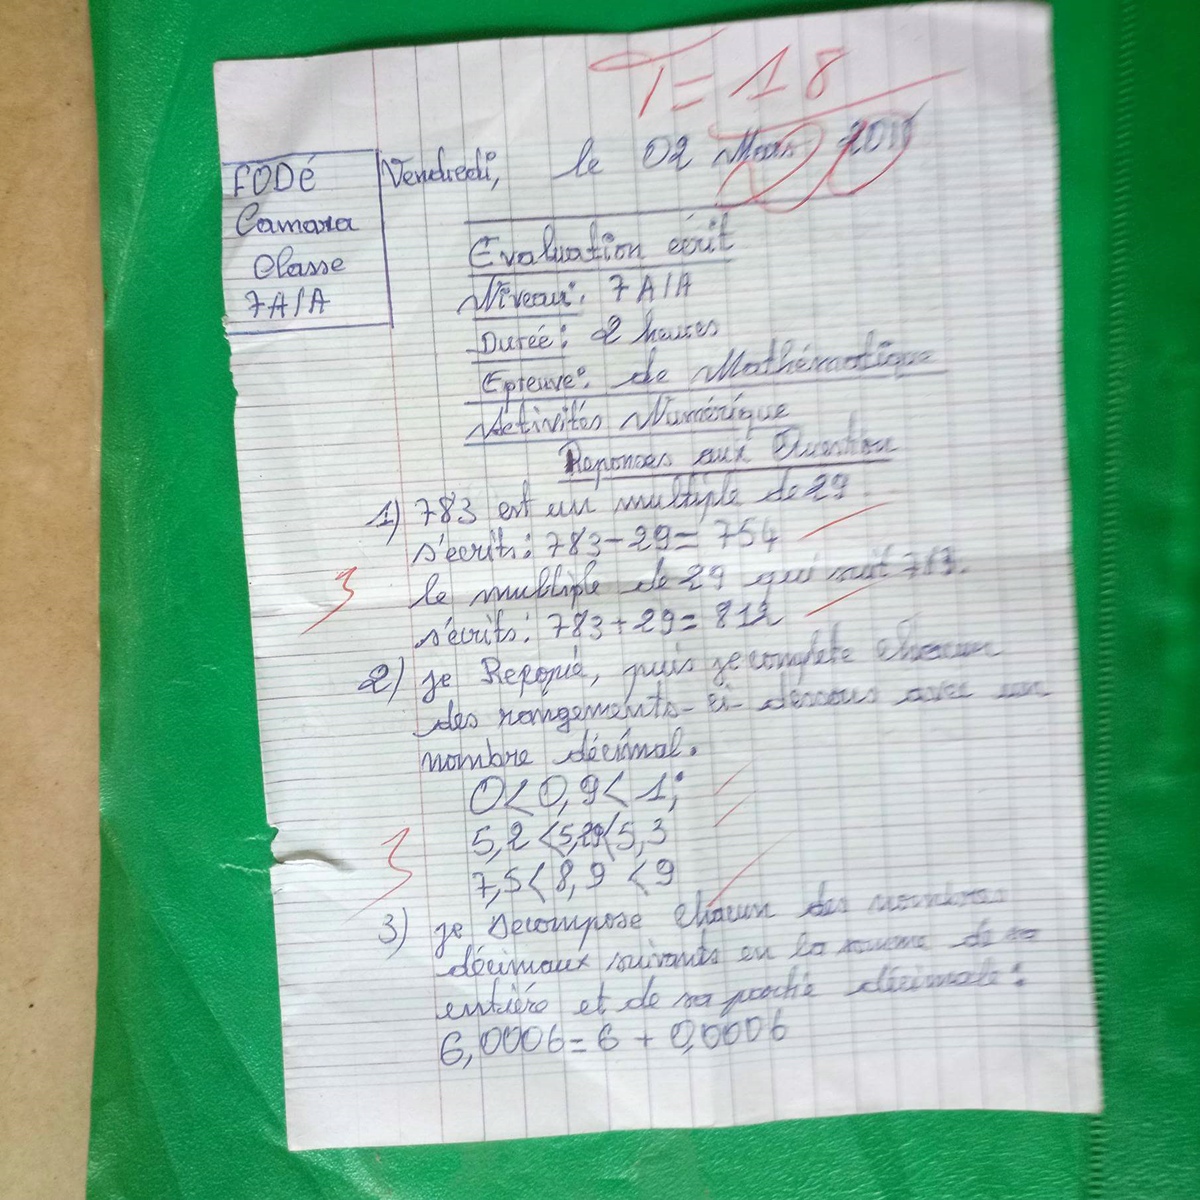 T = 18
FODÉ
Camara
Classe
7A/A
Vendredi, le 02 Mars
Evaluation écrit
Niveau: 7A/A
Durée: 2 heures
Epreuve: de Mathématique
Activités Numérique
Reponses aux Question
1) 783 est un multiple de 29.
s'écrits: 783-29= 754
3
le multiple de 29 qui suit 783.
s'écrits: 783+29= 812
2) je Recopié, puis je complete chacun
des rangements-ci-dessous avec un
nombre décimal.
0<0,9<1;
3
5,2<5,29<5,3
7,5<8,9<9
3) je Decompose chacun des nombres
décimaux suivants en la somme de sa
entiére et de sa partie décimale:
6,0006=6+0,0006